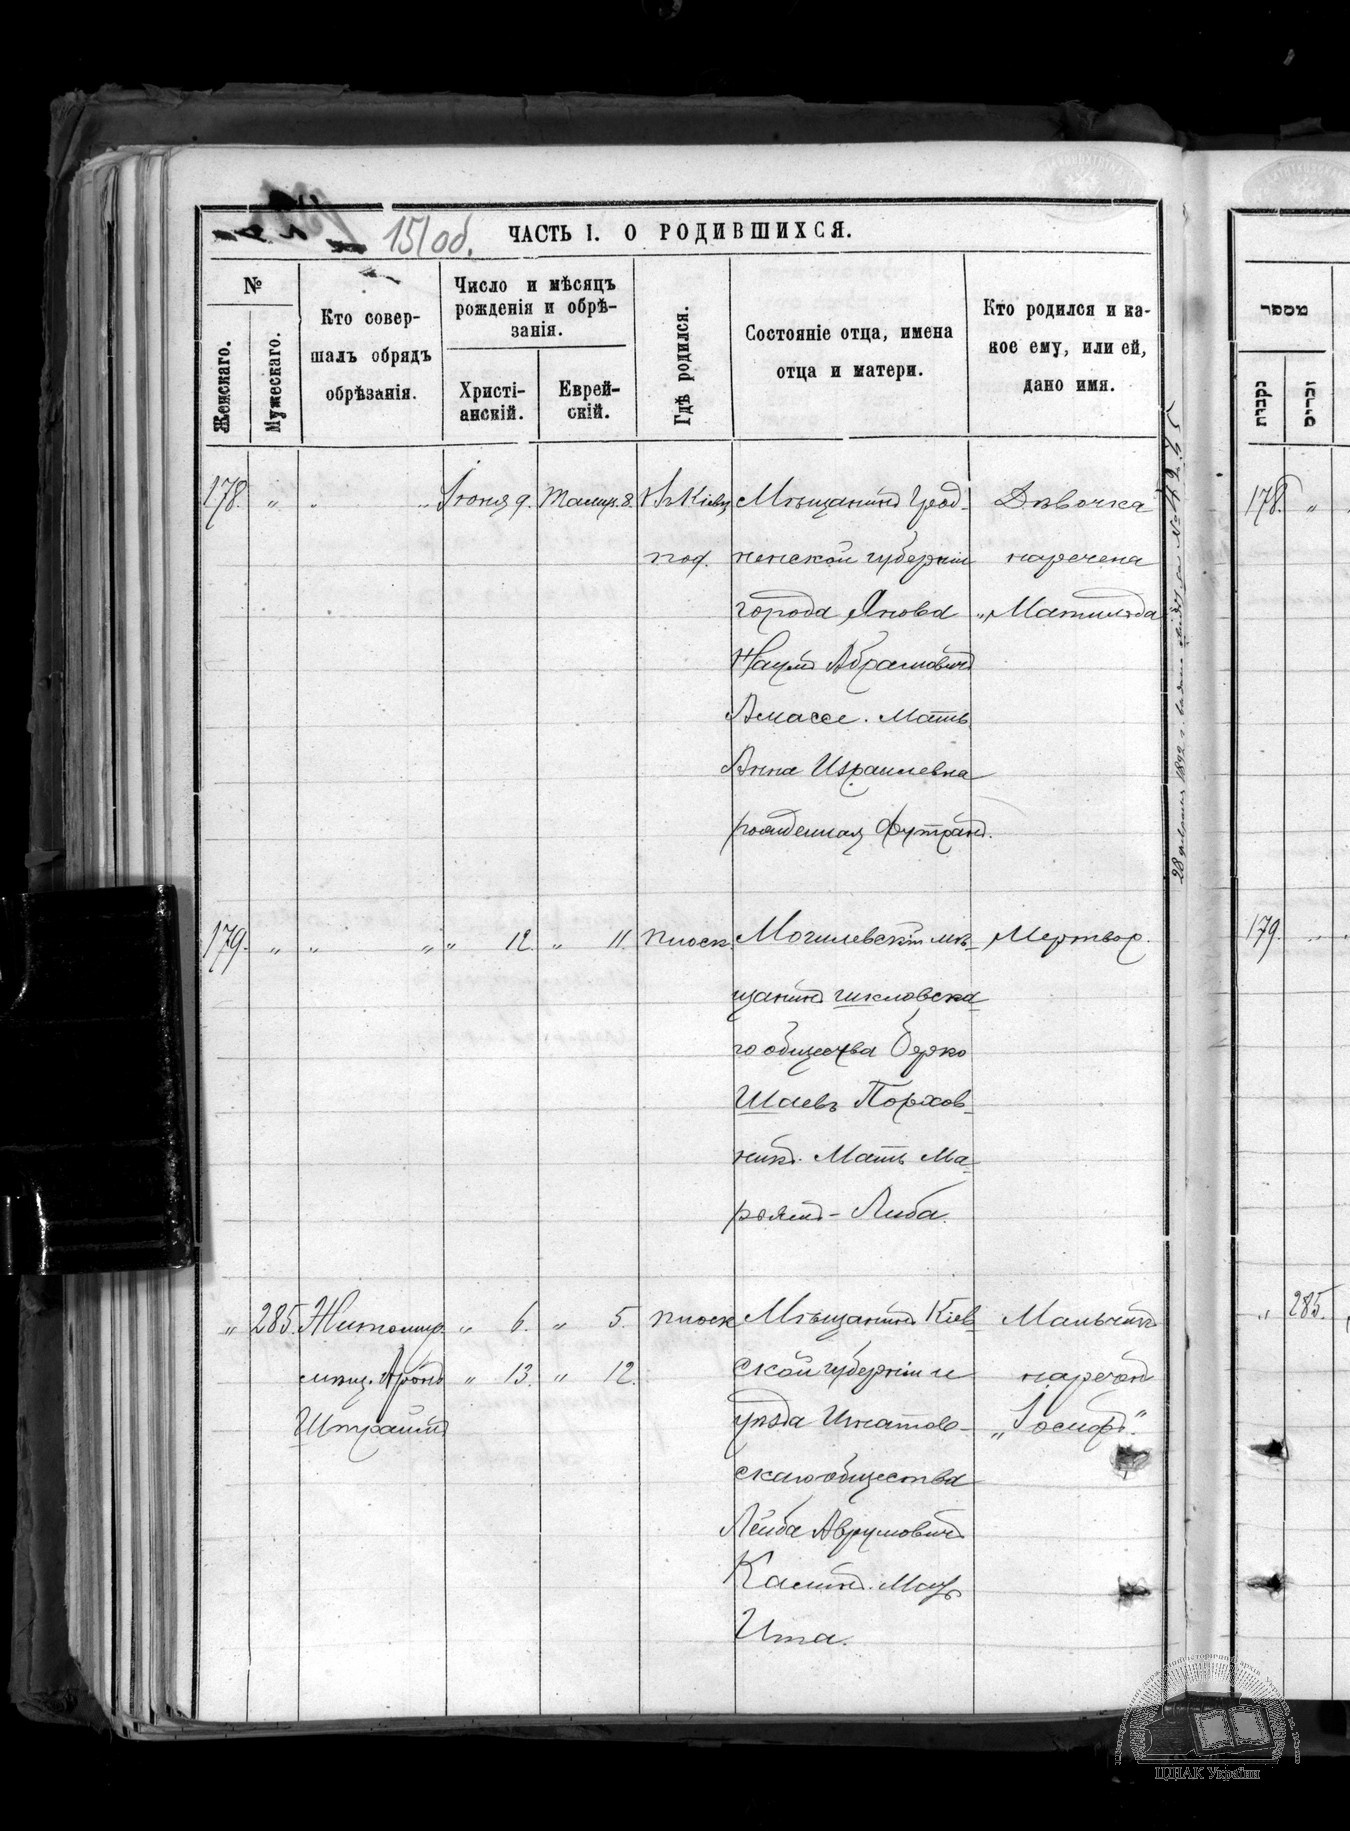 151 об.
ЧАСТЬ I. О РОДИВШИХСЯ.
№
Женскаго.
Мужескаго.
Кто совер-
шалъ обрядъ
обрѣзанія.
Число и мѣсяцъ
рожденія и обрѣ-
занія.
Христі-
анскій.
Еврей-
скій.
Гдѣ родился.
Состояніе отца, имена
отца и матери.
Кто родился и ка-
кое ему, или ей,
дано имя.
178. " " " Іюня 9. Тамуз. 8. Мѣщанинъ Грод-
ненской губерніи
города Янова
Наумъ Абрамовичъ
Амассе. Мать
Анна Израилевна
рожденная Футранъ.
Дѣвочка
наречена
„Матильда
179. " " " " 12. " 11. Плоск. Могилевскій мѣ-
щанинъ шкловска-
го общества Берко
Шаевъ Порхов-
никъ. Мать Ма-
рьямъ-Либа.
Мертвор.
" 285. Житомир. " 6. " 5. Плоск
мѣщ. Аронъ " 13. " 12.
Штраймъ
Мѣщанинъ Кіев-
ской губерніи и
уѣзда Игнатов-
скаго общества
Лейба Аврумовичъ
Каминъ. Мать
Ита.
Мальчикъ
нареченъ
„Іосифъ".
מספר
נקבית
זכרים
178. "
179. "
" 285.
ЦДІАК України